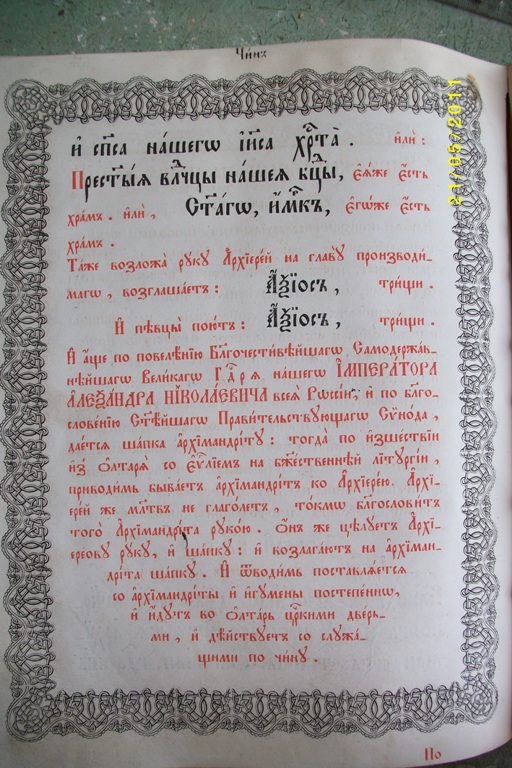 Чи́нъ
и҆ сп҃са на́шегѡ і҆и҃са хрⷭ҇та̀ . и҆лѝ :
Прест҃ы́ѧ влⷣчцы на́шеѧ бцⷣы, є҆ѧ́же є҆́сть
храмъ . и҆лѝ , Ст҃а́гѡ, и҆́м҃къ , є҆гѡ́же є҆́сть
храмъ .
Та́же возложа̀ рꙋ́кꙋ А҆рхїере́й на главꙋ̀ производи́-
магѡ , возглаша́етъ : А҆́ѯїосъ , три́щи .
И҆ пѣвцы̀ пою́тъ : А҆́ѯїосъ , три́щи .
И҆ а҆́ще по повелѣ́нїю Бл҃гочести́вѣйшагѡ Самодержа́в-
нѣйшагѡ Вели́кагѡ Гдⷭ҇рѧ на́шегѡ І҆МПЕРА́ТОРА
А҆ЛЕѮА́НДРА НІКОЛА́ЕВИЧА всеѧ̀ Рѡссі́и, и҆ по бл҃го-
слове́нїю Ст҃ѣ́йшагѡ Прави́тельствꙋющагѡ Сѷно́да ,
дае́тсѧ ша́пка а҆рхїмандрі́тꙋ : тогда̀ по и҆зше́ствїи
и҆з̾ ѻ҆лтарѧ̀ со є҆ѵⷢ҇лїемъ на бж҃е́ственнѣй лїтꙋргі́и ,
приводи́мь быва́етъ а҆рхїмандрі́тъ ко А҆рхїере́ю . А҆рхї-
ере́й же мл҃твъ не глаго́летъ , то́кмѡ бл҃гослови́тъ
того̀ А҆рхїмандрі́та рꙋко́ю . Ѻ҆́нъ же цѣлꙋ́етъ А҆рхї-
ере́овꙋ рꙋ́кꙋ , и҆ ша́пкꙋ : и҆ возлага́ютъ на а҆рхїман-
дрі́та ша́пкꙋ . И҆ ѿводи́мь поставлѧ́етсѧ
со а҆рхїмандрі́ты и҆ и҆гꙋ́мены постепе́ннѡ,
и҆ и҆́дꙋтъ во ѻ҆лта́рь црⷭ҇кими двєрь-
мѝ , и҆ дѣ́йствꙋетъ со слꙋжа́-
щими по чи́нꙋ .
По
21/05/2011